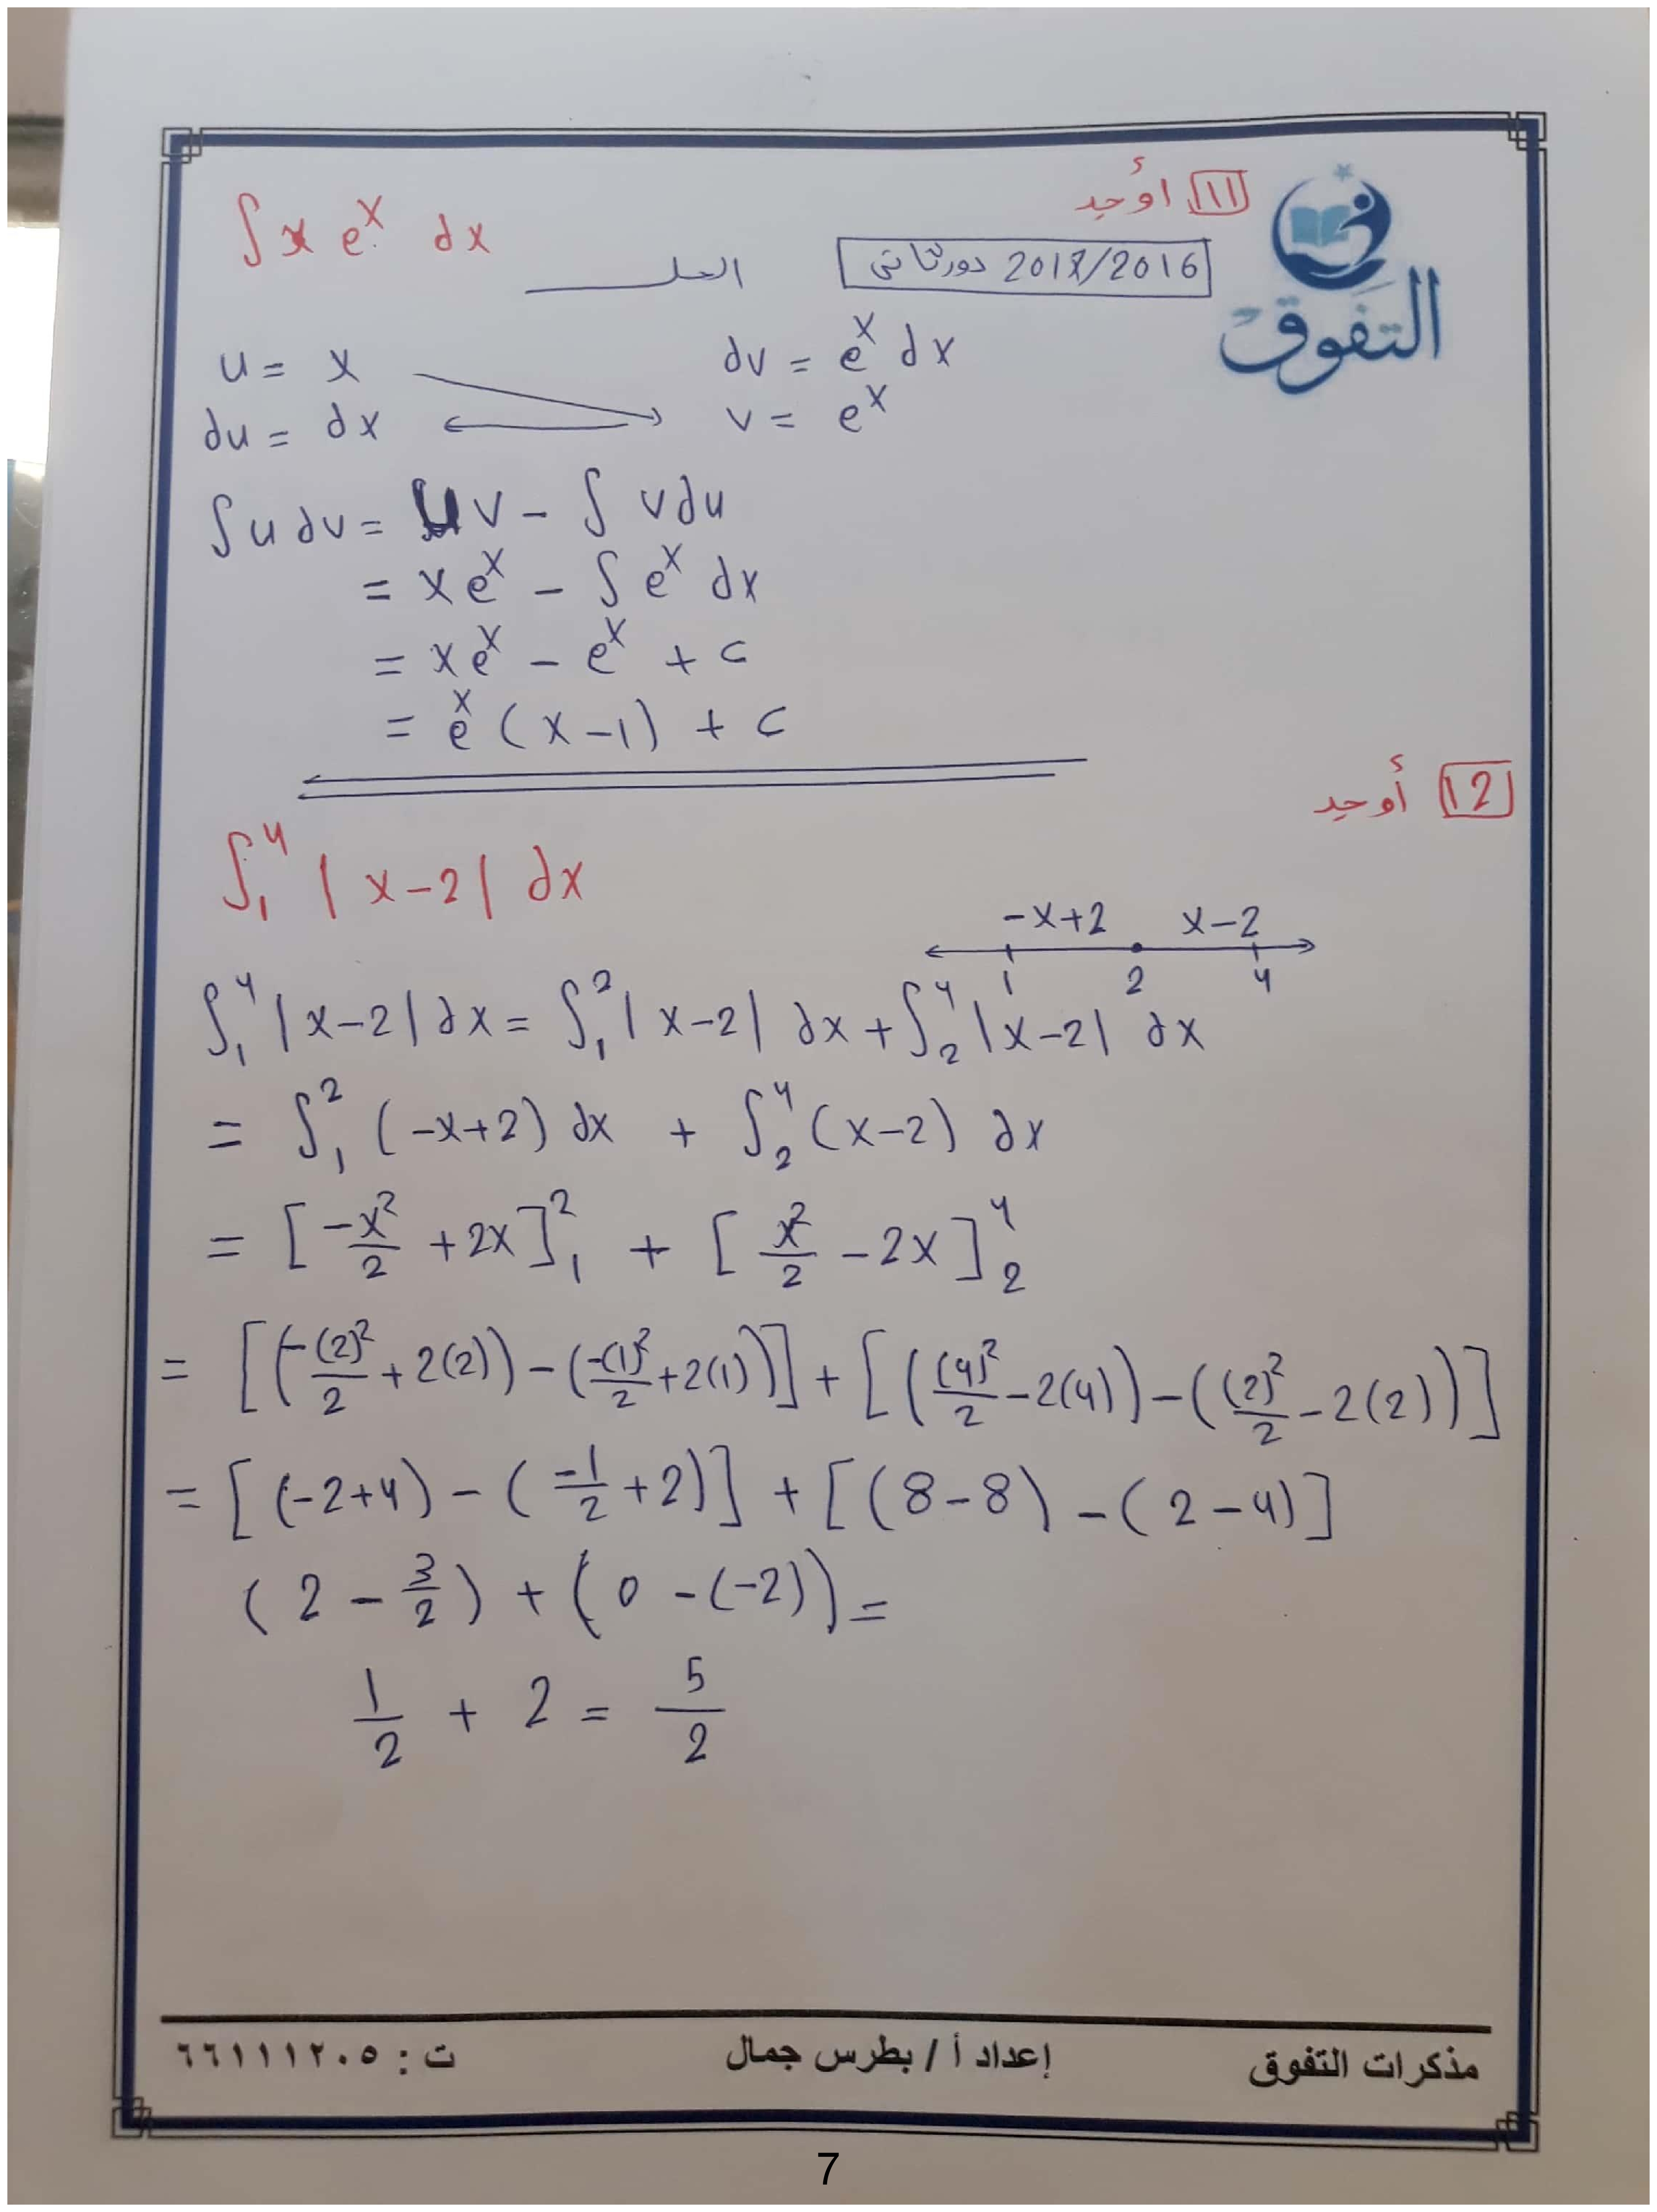 11 أوجد
∫ x e^x dx
2017/2016 دور ثاني
الحل
التفوق
u = x dv = e^x dx
du = dx v = e^x
∫ u dv = uv - ∫ v du
= x e^x - ∫ e^x dx
= x e^x - e^x + c
= e^x (x-1) + c
12 أوجد
∫₁⁴ |x-2| dx
-x+2 x-2
1 2 4
∫₁⁴ |x-2| dx = ∫₁² |x-2| dx + ∫₂⁴ |x-2| dx
= ∫₁² (-x+2) dx + ∫₂⁴ (x-2) dx
= [-x²/2 + 2x]₁² + [x²/2 - 2x]₂⁴
= [(-(2)²/2 + 2(2)) - (-(1)²/2 + 2(1))] + [((4)²/2 - 2(4)) - ((2)²/2 - 2(2))]
= [(-2+4) - (-1/2 + 2)] + [(8-8) - (2-4)]
(2 - 3/2) + (0 - (-2)) =
1/2 + 2 = 5/2
مذكرات التفوق إعداد أ / بطرس جمال ت : ٦٦١١١٢٠٥
7